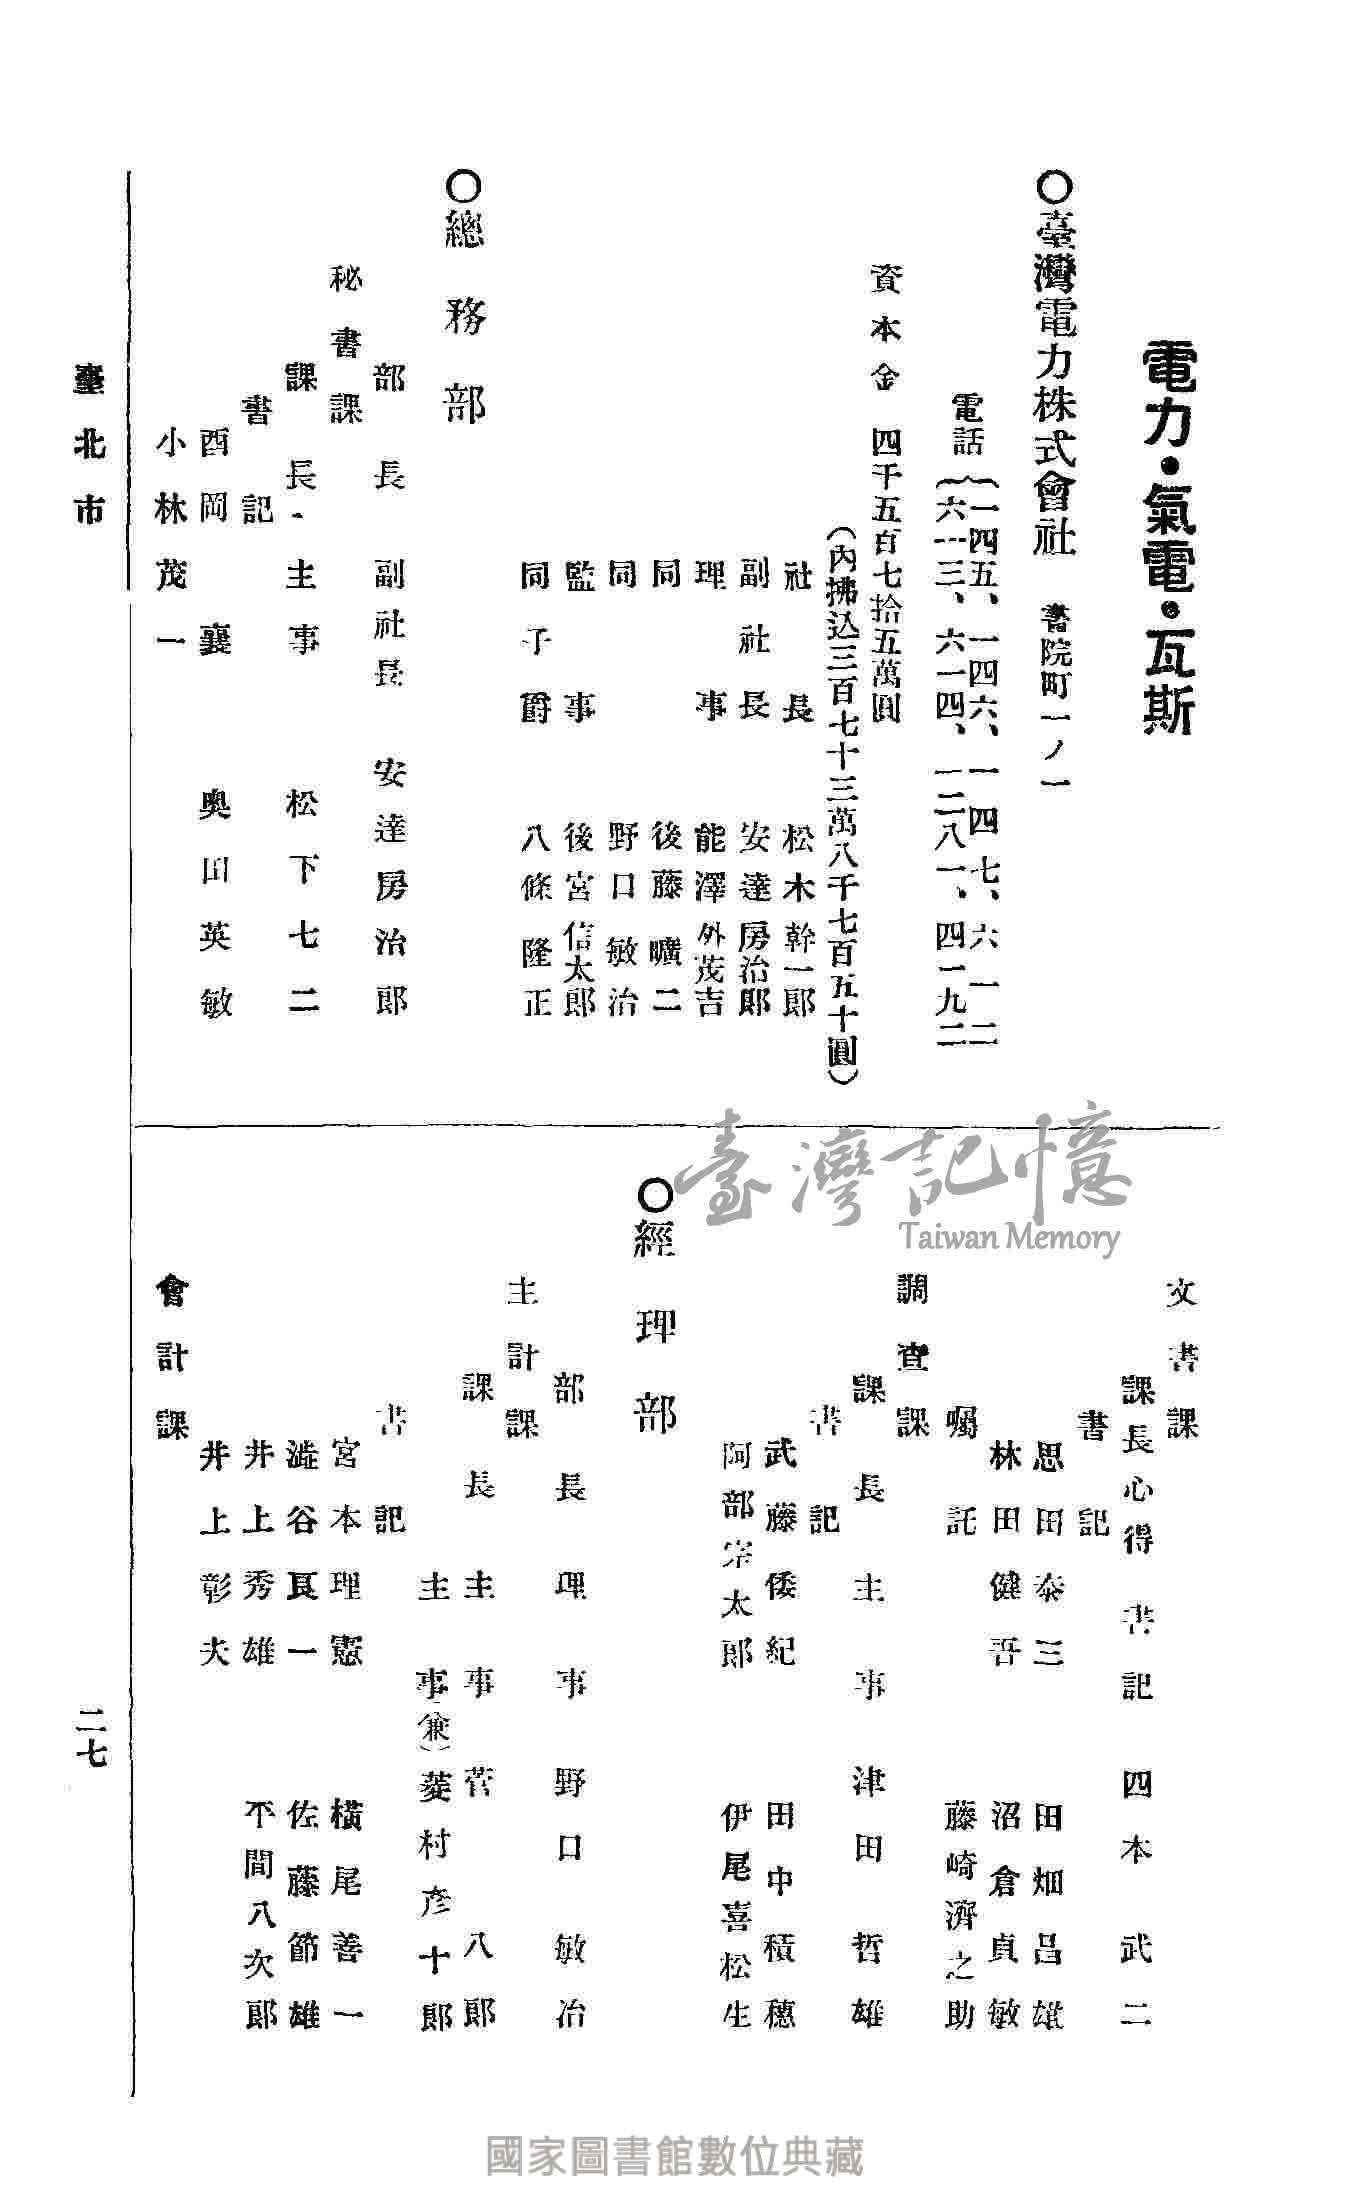 電力・氣電・瓦斯
○臺灣電力株式會社 書院町一ノ一
電話{一四五、一四六、一四七、六一二
六一三、六一四、一二八一、四一九二
資本金 四千五百七拾五萬圓
(內拂込三百七十三萬八千七百五十圓)
社長 松木幹一郎
副社長 安達房治郎
理事 能澤外茂吉
同 後藤曠二
同 野口敏治
監事 後宮信太郎
同子爵 八條隆正
○總務部
部長 副社長 安達房治郎
秘書課
課長、主事 松下七二
書記
西岡襄 奧田英敏
小林茂一
文書課
課長心得 書記 四本武二
書記
思田泰三 田畑昌雄
林田健吾 沼倉貞敏
囑託 藤崎濟之助
調查課
課長 主事 津田哲雄
書記
武藤倭紀 田中積穗
阿部宗太郎 伊尾喜松生
○經理部
部長 理事 野口敏治
主計課
課長 主事 菅八郎
主事(兼)菱村彥十郎
書記
宮本理憲 橫尾善一
澁谷良一 佐藤節雄
井上秀雄 不間八次郎
井上彰夫
會計課
臺北市
二七
臺灣記憶
Taiwan Memory
國家圖書館數位典藏